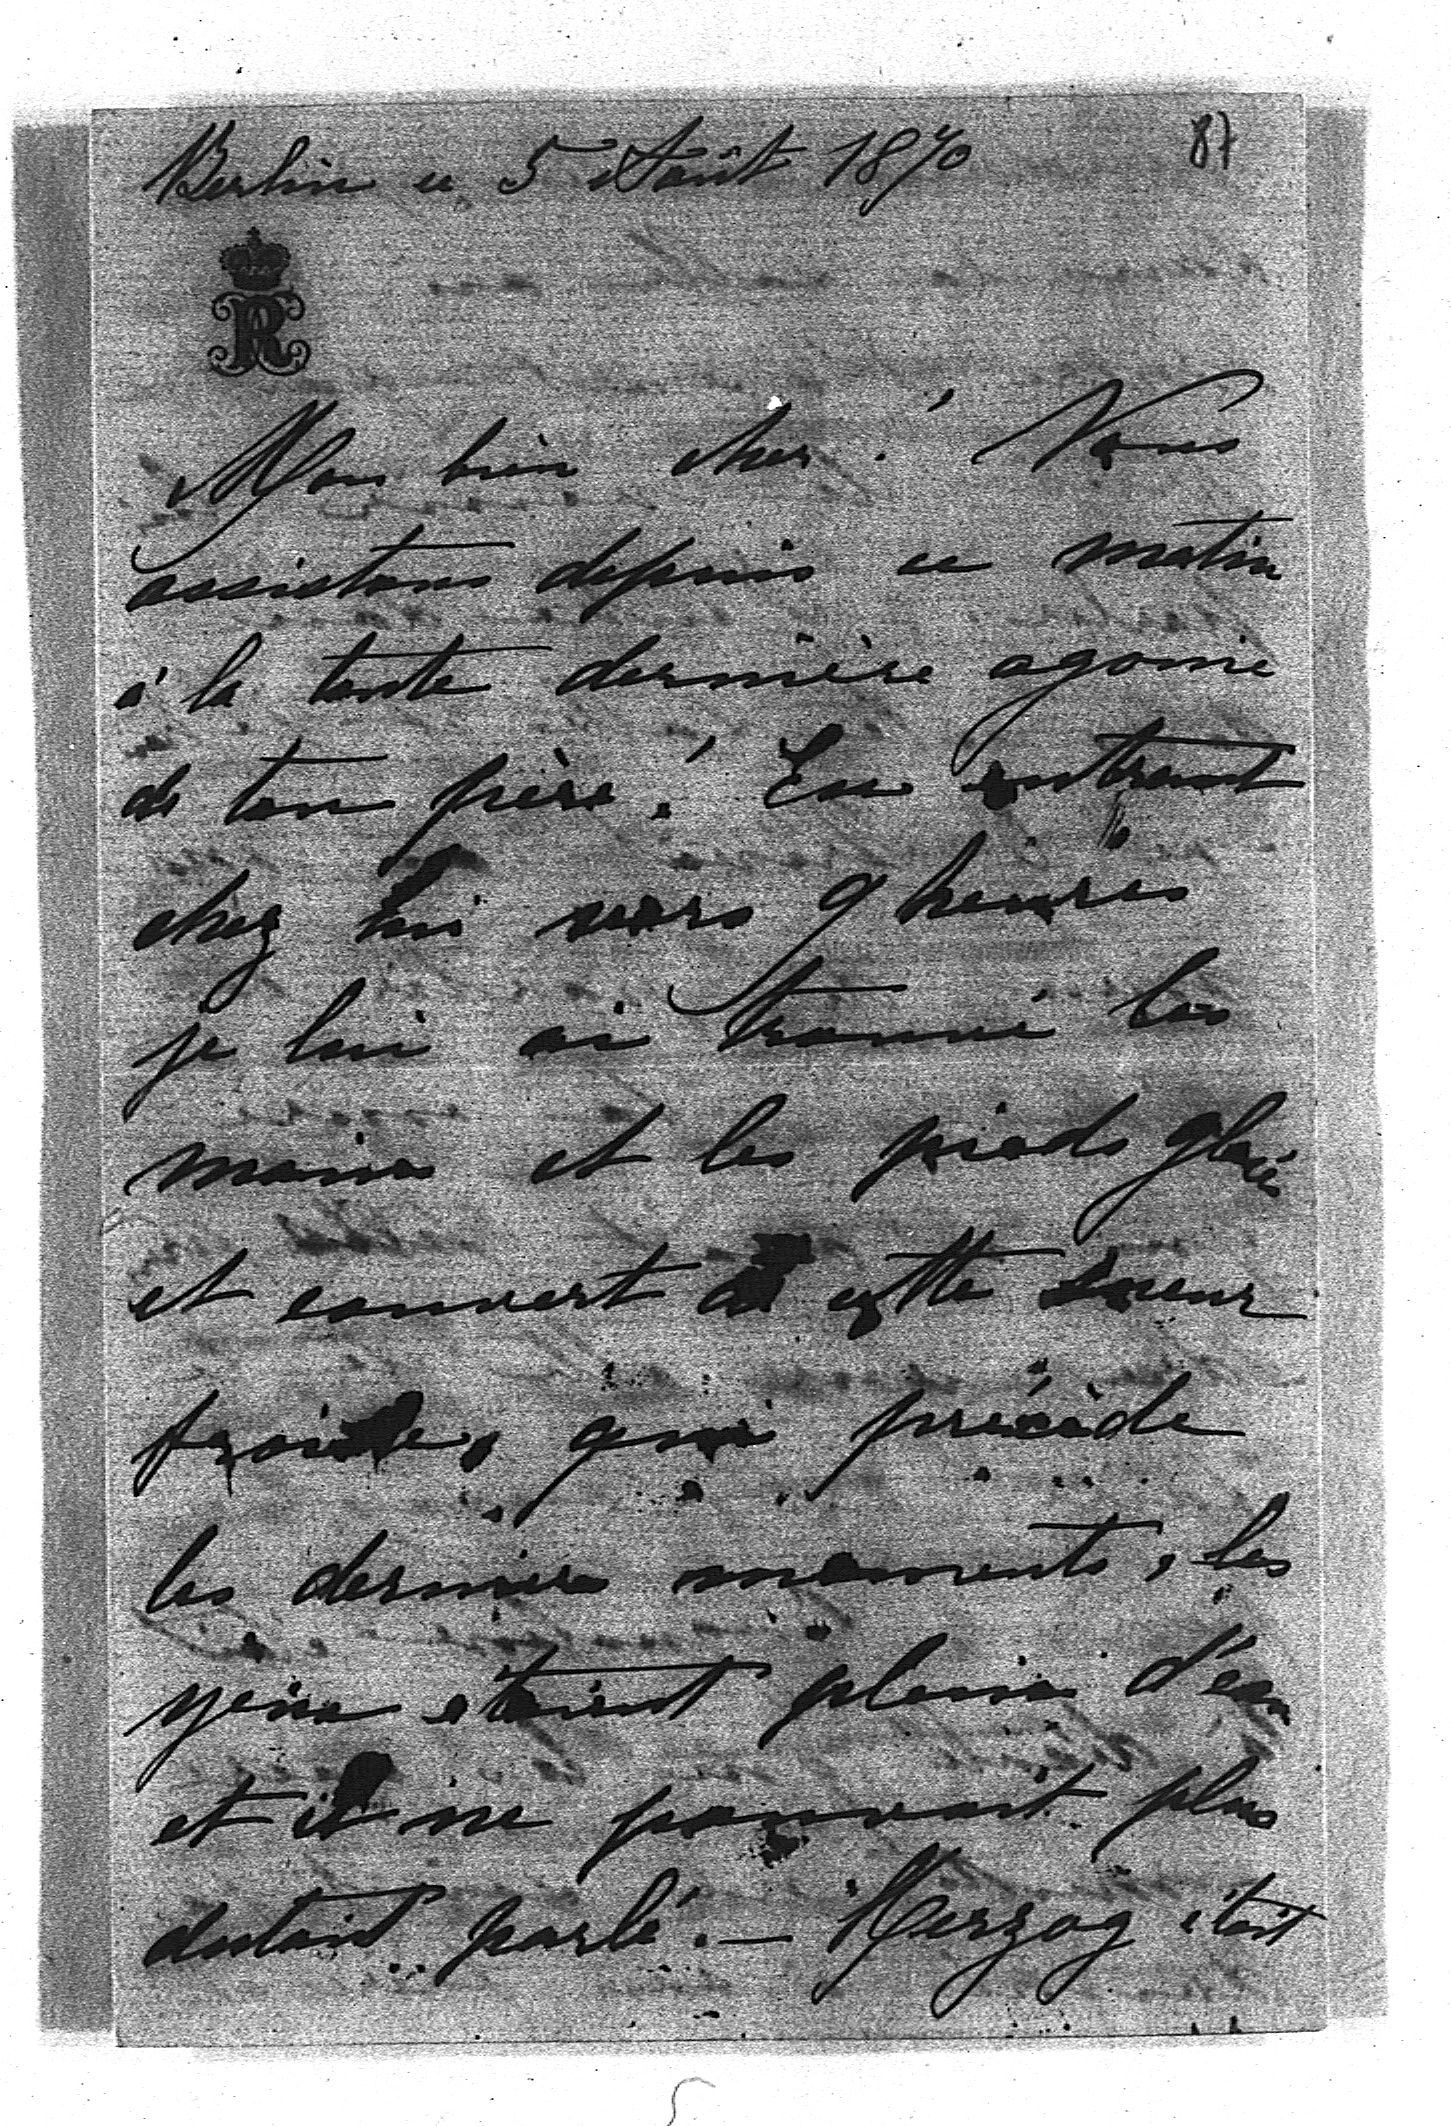 Berlin ce 5 Août 1870
87
R
Mon bien cher! Nous
assistons depuis ce matin
à la toute dernière agonie
de ton père! En entrant
chez lui vers 9 heures
je lui ai trouvé les
mains et les pieds glacés
et couvert de cette sueur
froide, qui précède
les derniers moments, les
yeux étaient pleins d'eau
et il ne pouvait plus
du tout parlé. — Herzog était